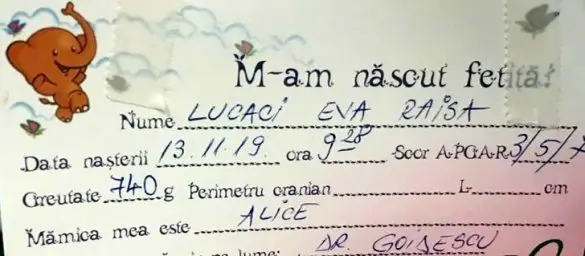 M-am născut fetiță!
Nume LUCACI EVA RAISA
Data nașterii 13.11.19. ora 9 28 Scor APGAR 3/5/7
Greutate 740 g Perimetru cranian L cm
Mămica mea este ALICE
lume: DR. GOIDESCU